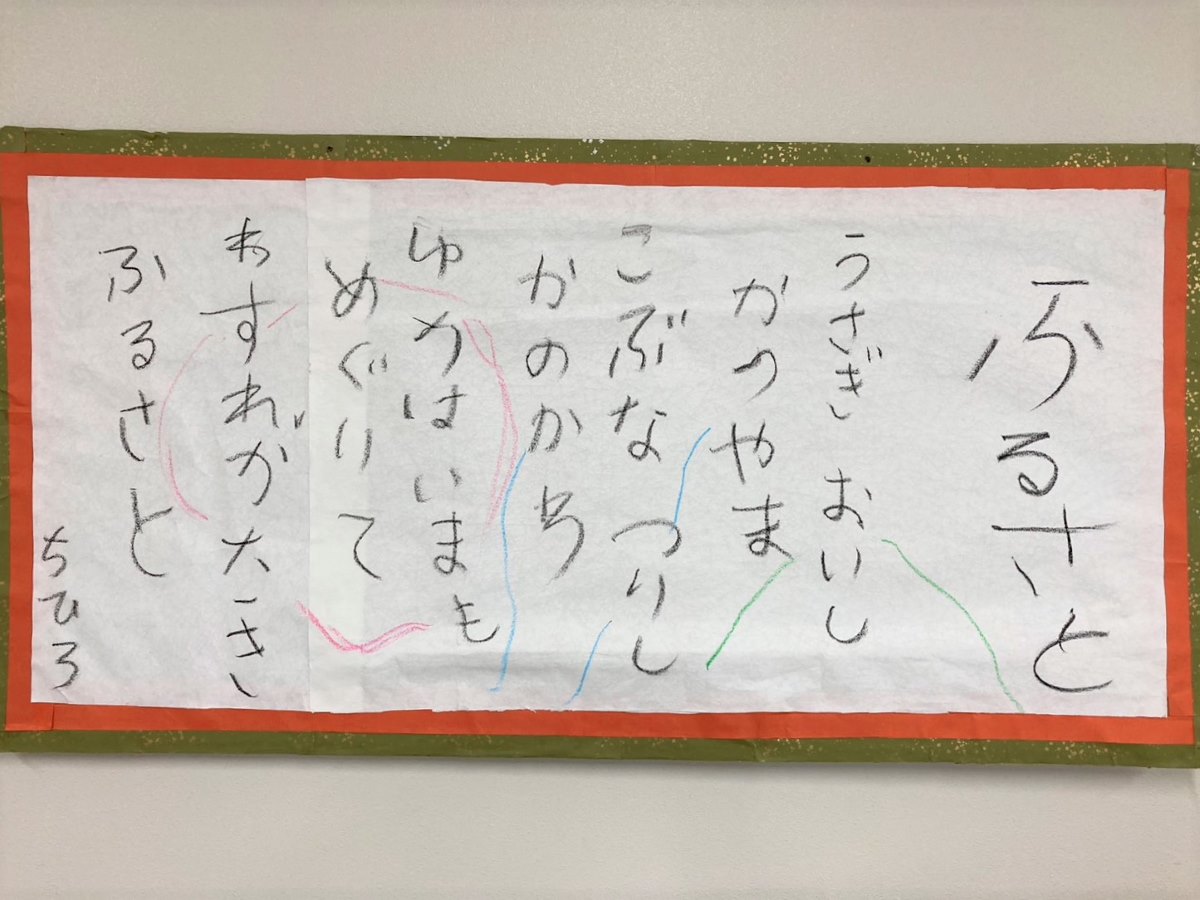 ふるさと
うさぎ おいし
かのやま
こぶな つりし
かのかわ
ゆめはいまも
めぐりて
わすれがたき
ふるさと
ちひろ